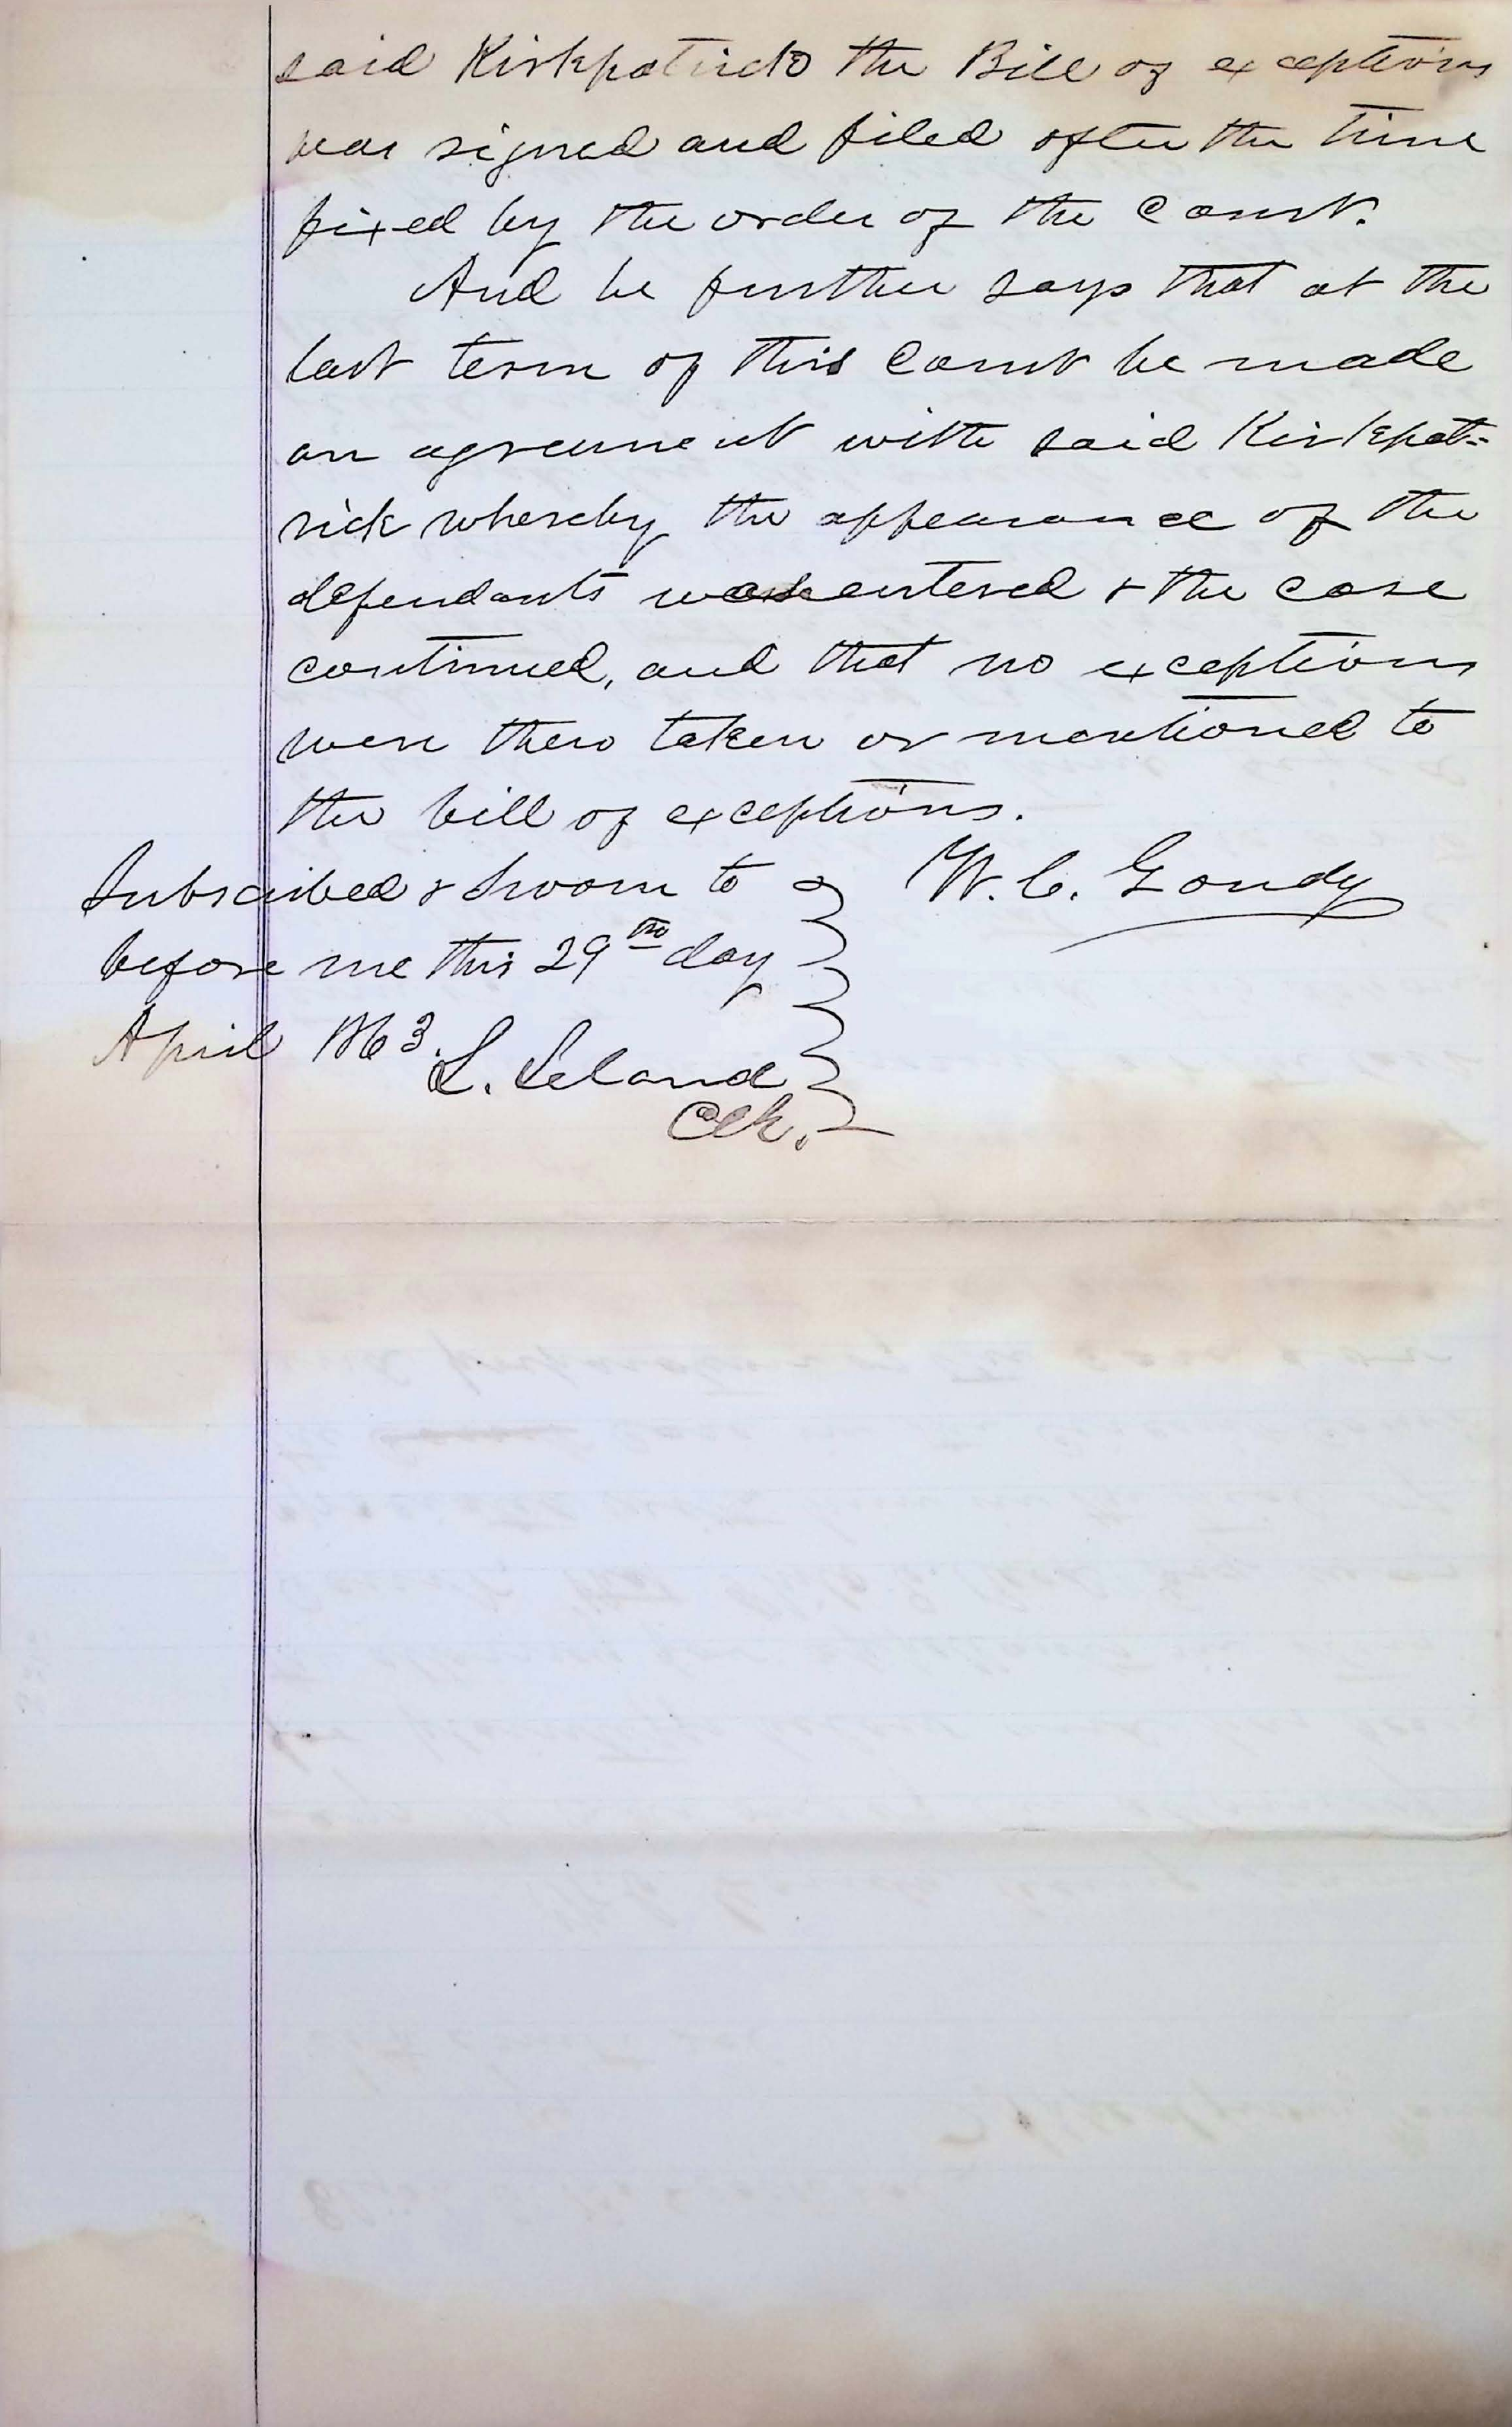 said Kirkpatrick the Bill of exceptions
was signed and filed after the time
fixed by the order of the Court.
And he further says that at the
last term of this Court he made
an agreement with said Kirkpat=
rick whereby the appearance of the
defendants was entered & the case
continued, and that no exceptions
were then taken or mentioned to
the bill of exceptions.
W. C. Goudy
Subscribed & Sworn to
before me this 29th day
April 1863.
L. Leland
Clk.